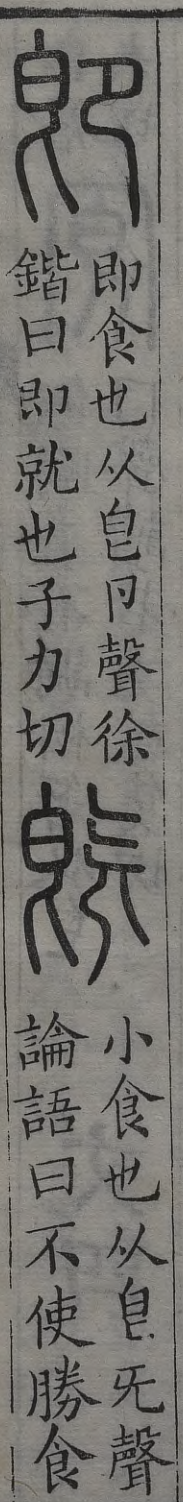 即
即食也从皀卪聲徐
鍇曰即就也子力切
既
小食也从皀旡聲
論語曰不使勝食